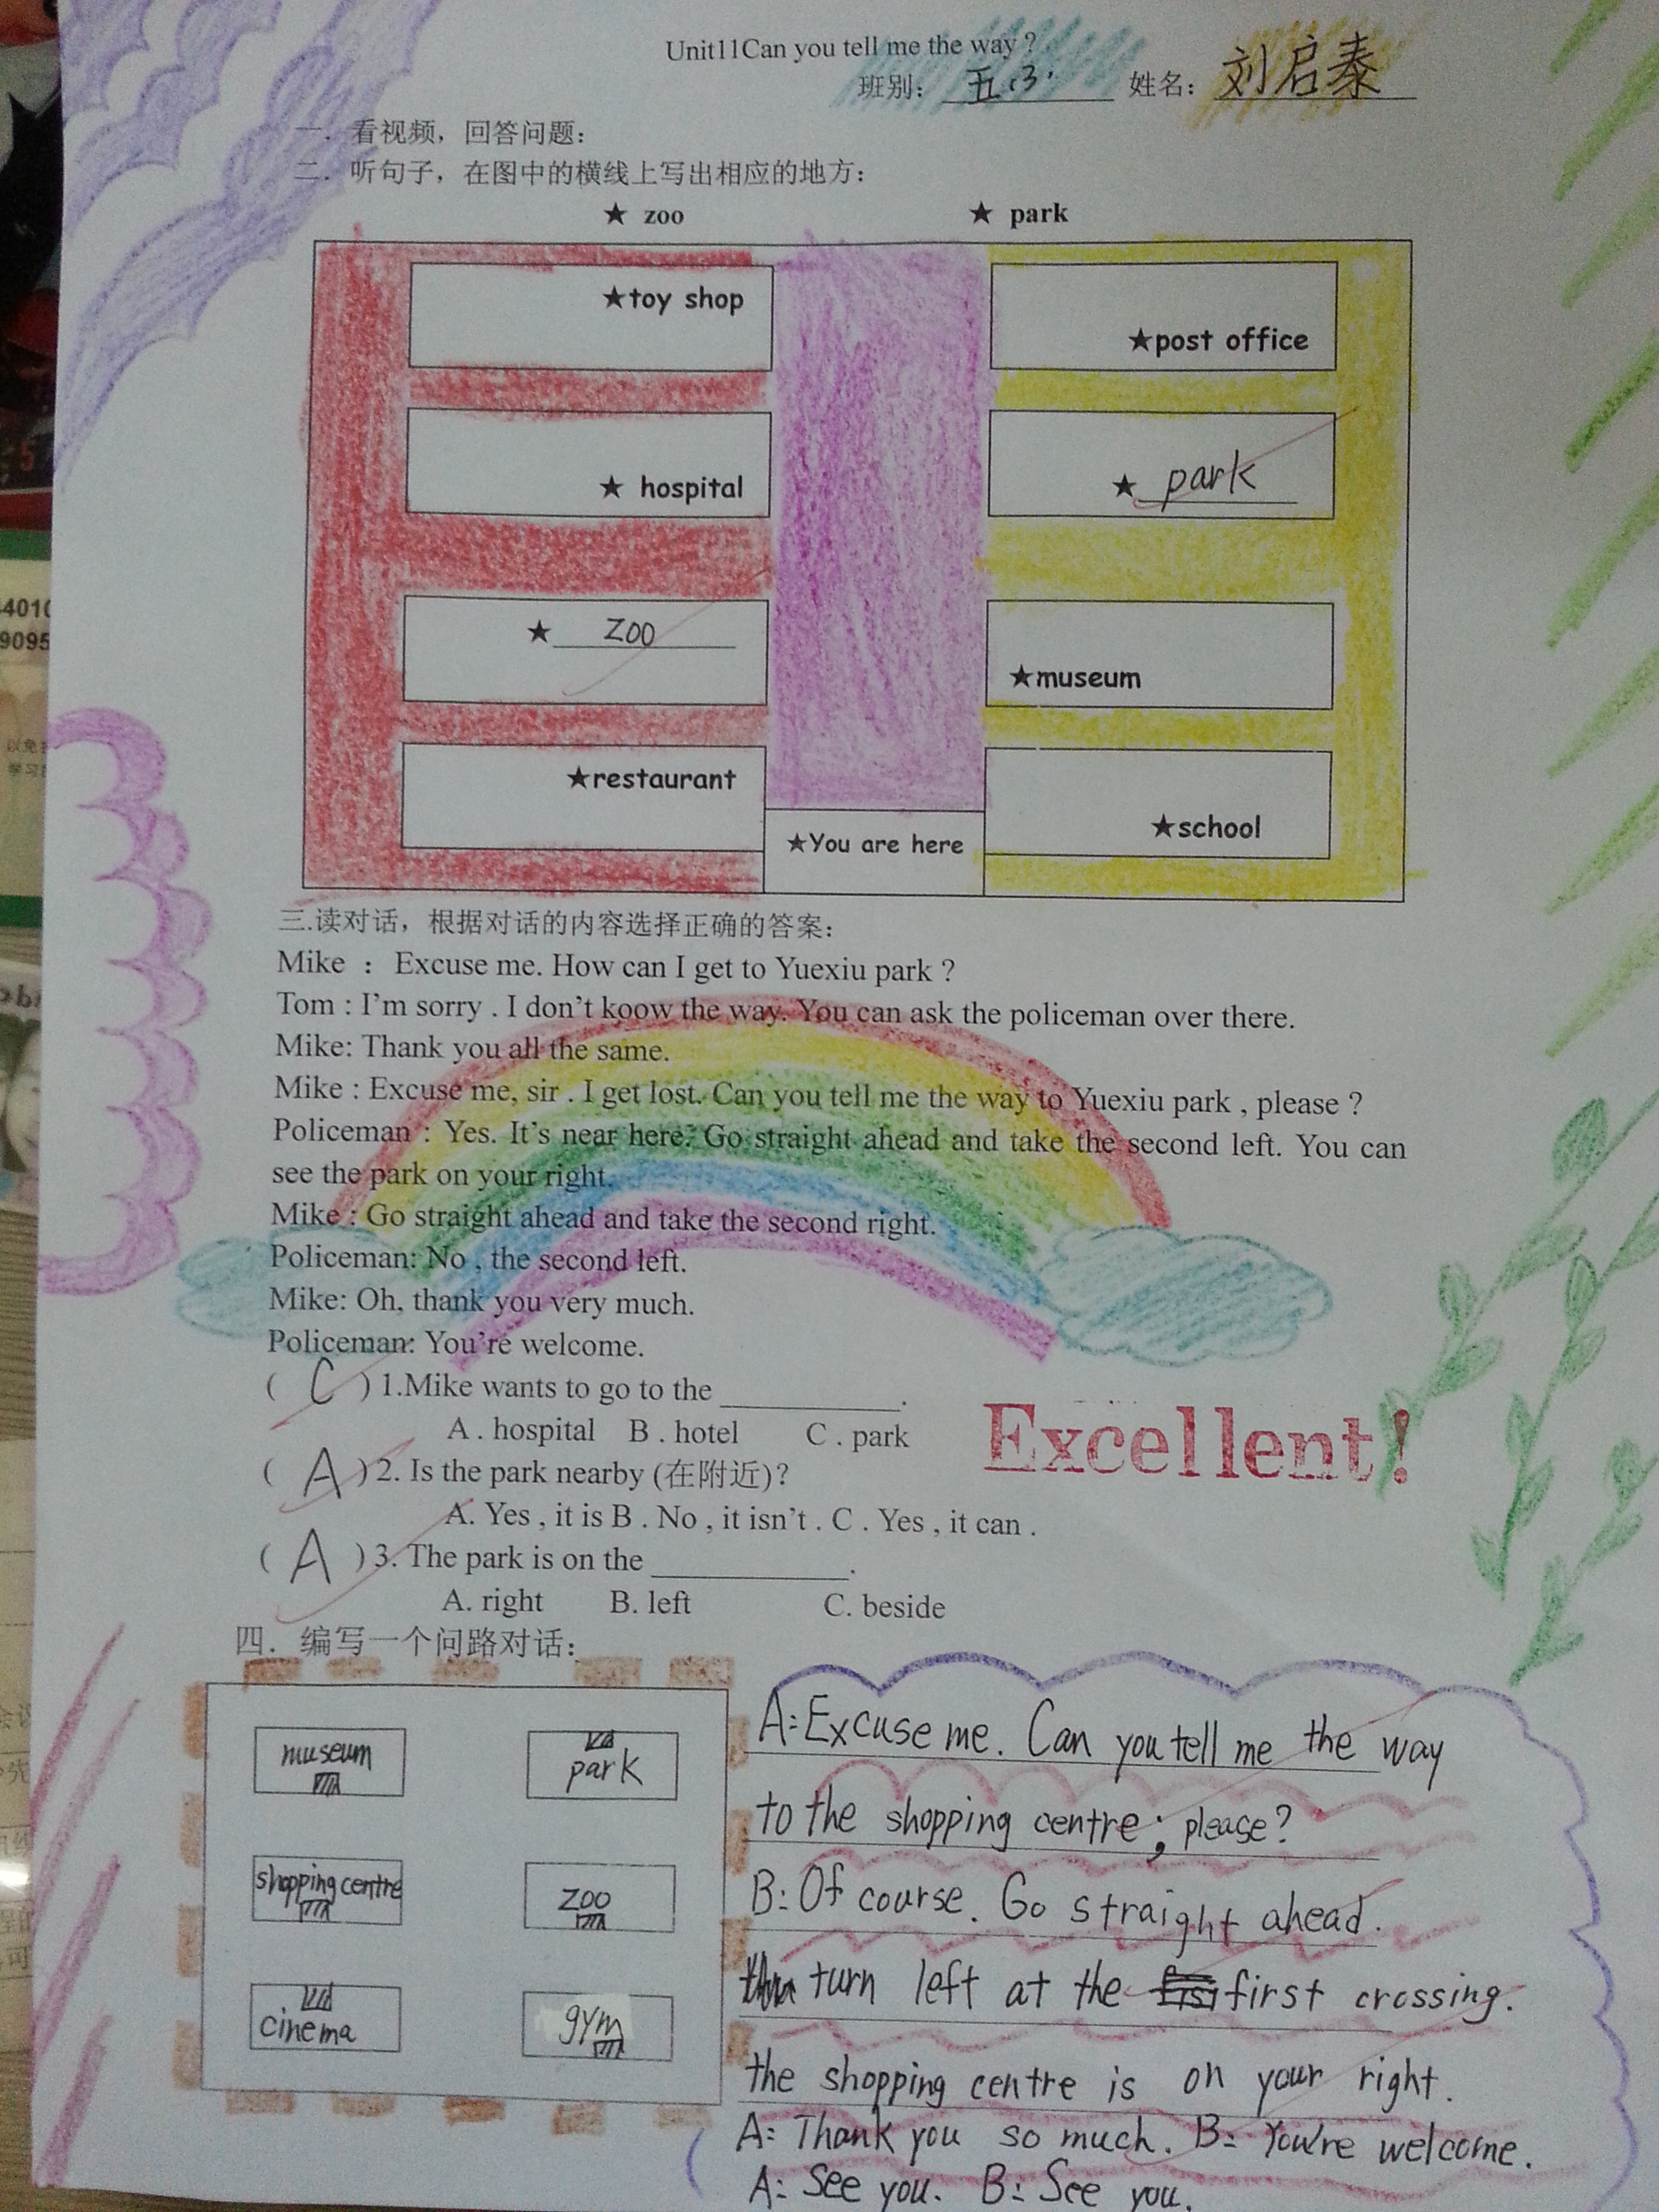 Unit11Can you tell me the way ?
班别: 五(3) 姓名: 刘启泰
一. 看视频, 回答问题:
二. 听句子, 在图中的横线上写出相应的地方:
★ zoo ★ park
★toy shop
★post office
★ hospital
★ park
★ zoo
★museum
★restaurant
★school
★You are here
三.读对话, 根据对话的内容选择正确的答案:
Mike : Excuse me. How can I get to Yuexiu park ?
Tom : I'm sorry . I don't koow the way. You can ask the policeman over there.
Mike: Thank you all the same.
Mike : Excuse me, sir . I get lost. Can you tell me the way to Yuexiu park , please ?
Policeman : Yes. It's near here. Go straight ahead and take the second left. You can
see the park on your right.
Mike : Go straight ahead and take the second right.
Policeman: No , the second left.
Mike: Oh, thank you very much.
Policeman: You're welcome.
( C ) 1.Mike wants to go to the ____________.
A . hospital B . hotel C . park
Excellent!
( A ) 2. Is the park nearby (在附近)?
A. Yes , it is B . No , it isn't . C . Yes , it can .
( A ) 3. The park is on the _____________.
A. right B. left C. beside
四. 编写一个问路对话:
museum
park
shopping centre
zoo
cinema
gym
A: Excuse me. Can you tell me the way
to the shopping centre, please?
B: Of course. Go straight ahead.
turn left at the first crossing.
the shopping centre is on your right.
A: Thank you so much. B: You're welcome.
A: See you. B: See you.
4401
9095